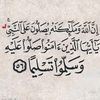 إِنَّ اللَّهَ وَمَلَٰٓئِكَتَهُۥ يُصَلُّونَ عَلَى النَّبِىِّ
يَٰٓأَيُّهَا الَّذِينَ ءَامَنُوا۟ صَلُّوا۟ عَلَيْهِ
وَسَلِّمُوا۟ تَسْلِيمًا ٥٦